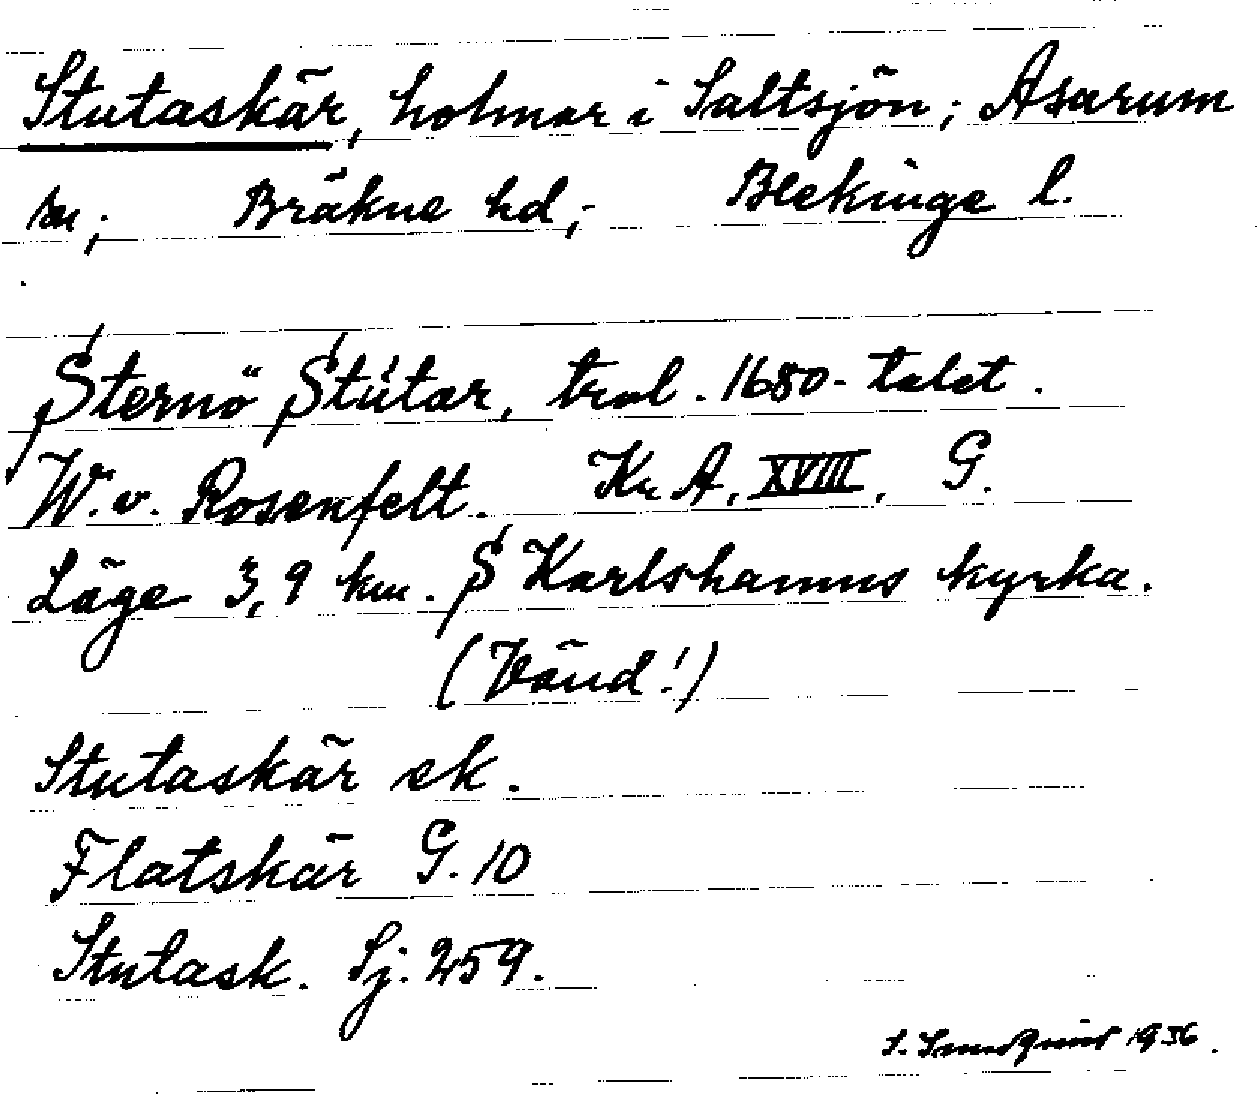 Stutaskär, holmar i Saltsjön; Asarum
sn; Bräkne hd; Blekinge l.
Sternö Stútar, trol. 1680-talet.
W. v. Rosenfelt. Kr. A, XVIII, G.
Läge 3,9 km. S Karlshamns kyrka.
(Vänd!)
Stutaskär ek.
Flatskär G. 10
Stutask. Sj. 259.
S. 1936.